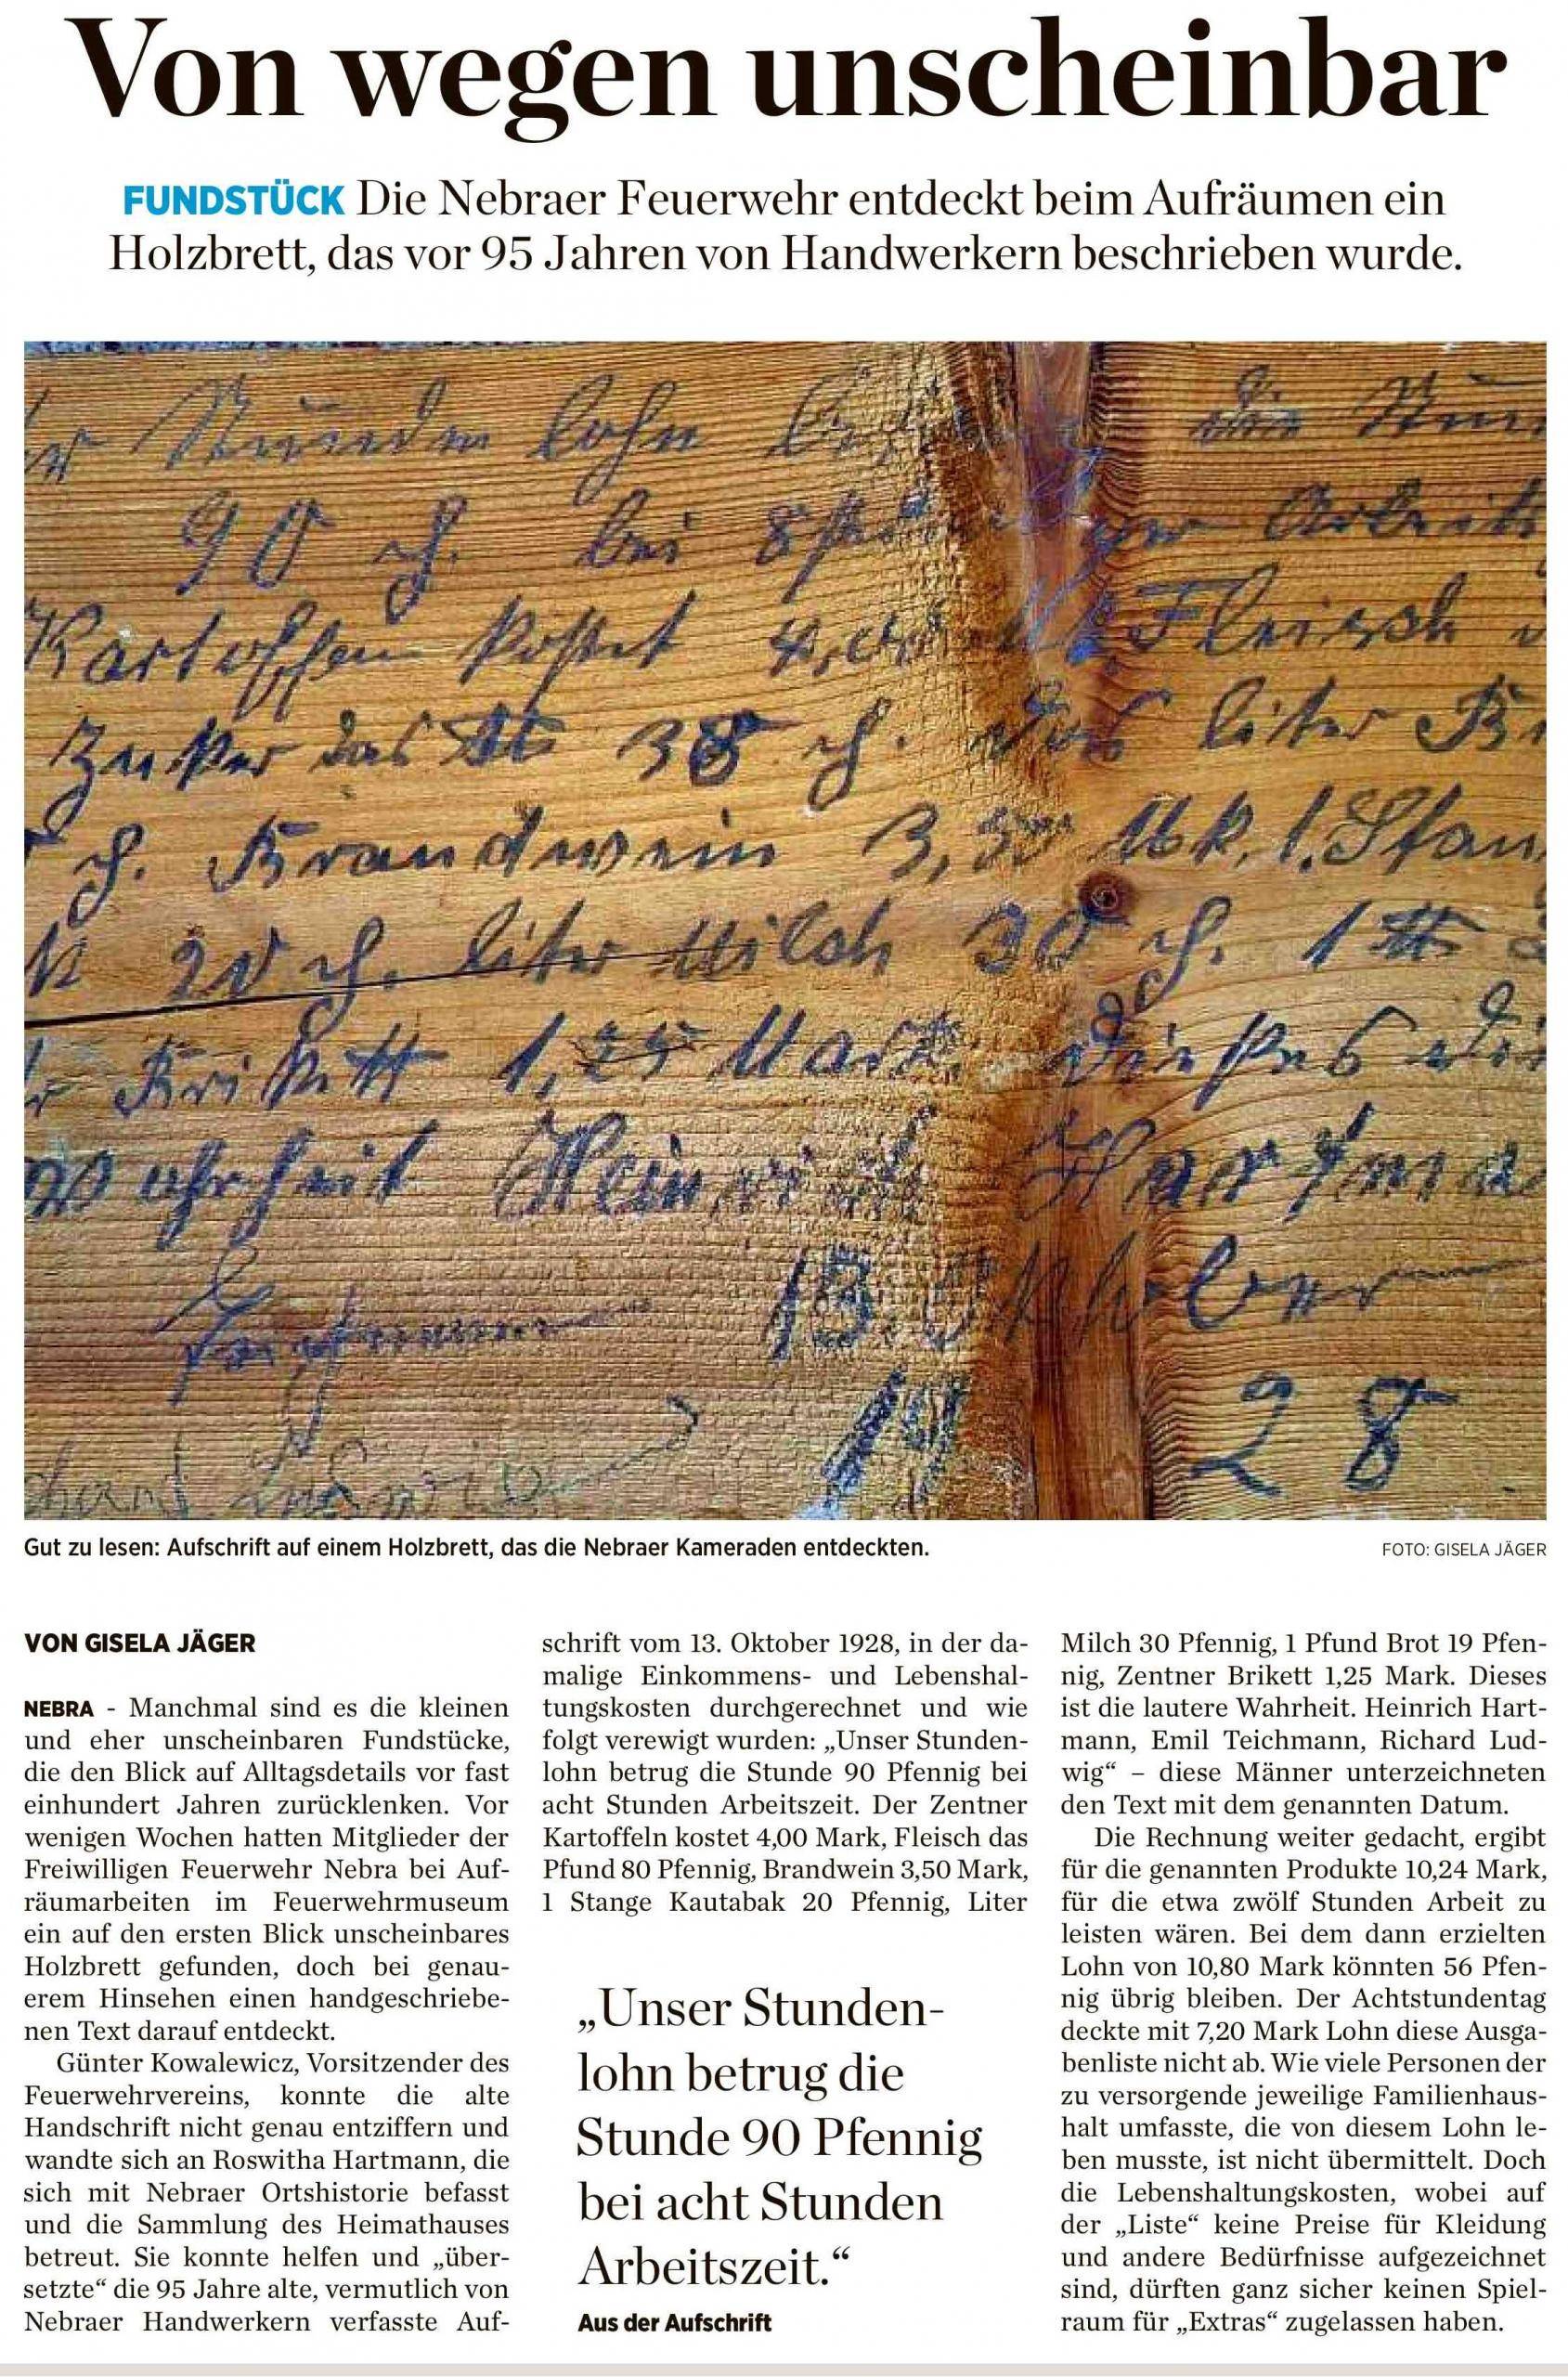 Von wegen unscheinbar
FUNDSTÜCK Die Nebraer Feuerwehr entdeckt beim Aufräumen ein
Holzbrett, das vor 95 Jahren von Handwerkern beschrieben wurde.
Stunden lohn die
90 bei
Kartoffen kostet Fleisch
Zucker das 38 das liter
Brandwein 3,50 Mk, 1. Stan
20 liter Milch 30 1
Brikett 1,25 Mark dieses
Heinrich Hartma
13. Oktober
19 28
Gut zu lesen: Aufschrift auf einem Holzbrett, das die Nebraer Kameraden entdeckten.
FOTO: GISELA JÄGER
VON GISELA JÄGER
NEBRA - Manchmal sind es die kleinen
und eher unscheinbaren Fundstücke,
die den Blick auf Alltagsdetails vor fast
einhundert Jahren zurücklenken. Vor
wenigen Wochen hatten Mitglieder der
Freiwilligen Feuerwehr Nebra bei Auf-
räumarbeiten im Feuerwehrmuseum
ein auf den ersten Blick unscheinbares
Holzbrett gefunden, doch bei genau-
erem Hinsehen einen handgeschriebe-
nen Text darauf entdeckt.
Günter Kowalewicz, Vorsitzender des
Feuerwehrvereins, konnte die alte
Handschrift nicht genau entziffern und
wandte sich an Roswitha Hartmann, die
sich mit Nebraer Ortshistorie befasst
und die Sammlung des Heimathauses
betreut. Sie konnte helfen und „über-
setzte“ die 95 Jahre alte, vermutlich von
Nebraer Handwerkern verfasste Auf-
schrift vom 13. Oktober 1928, in der da-
malige Einkommens- und Lebenshal-
tungskosten durchgerechnet und wie
folgt verewigt wurden: „Unser Stunden-
lohn betrug die Stunde 90 Pfennig bei
acht Stunden Arbeitszeit. Der Zentner
Kartoffeln kostet 4,00 Mark, Fleisch das
Pfund 80 Pfennig, Brandwein 3,50 Mark,
1 Stange Kautabak 20 Pfennig, Liter
„Unser Stunden-
lohn betrug die
Stunde 90 Pfennig
bei acht Stunden
Arbeitszeit.“
Aus der Aufschrift
Milch 30 Pfennig, 1 Pfund Brot 19 Pfen-
nig, Zentner Brikett 1,25 Mark. Dieses
ist die lautere Wahrheit. Heinrich Hart-
mann, Emil Teichmann, Richard Lud-
wig“ – diese Männer unterzeichneten
den Text mit dem genannten Datum.
Die Rechnung weiter gedacht, ergibt
für die genannten Produkte 10,24 Mark,
für die etwa zwölf Stunden Arbeit zu
leisten wären. Bei dem dann erzielten
Lohn von 10,80 Mark könnten 56 Pfen-
nig übrig bleiben. Der Achtstundentag
deckte mit 7,20 Mark Lohn diese Ausga-
benliste nicht ab. Wie viele Personen der
zu versorgende jeweilige Familienhaus-
halt umfasste, die von diesem Lohn le-
ben musste, ist nicht übermittelt. Doch
die Lebenshaltungskosten, wobei auf
der „Liste“ keine Preise für Kleidung
und andere Bedürfnisse aufgezeichnet
sind, dürften ganz sicher keinen Spiel-
raum für „Extras“ zugelassen haben.